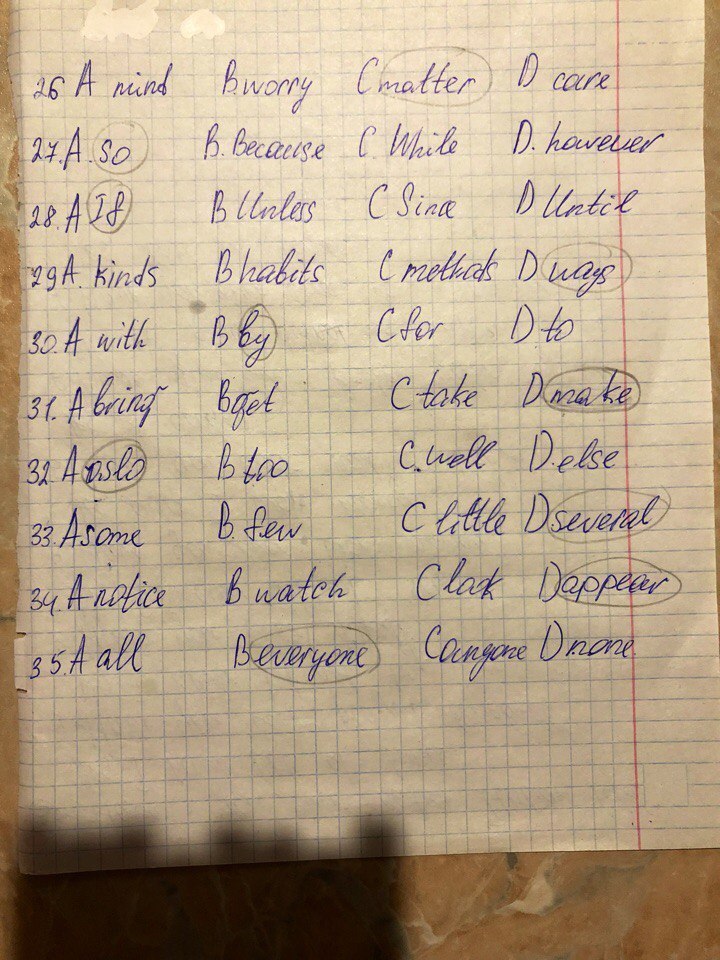 26 A mind B. worry C matter D care
27. A. so B. Because C. While D. however
28. A If B Unless C Since D Until
29 A. kinds B habits C methods D ways
30. A with B by C for D to
31. A bring B get C take D make
32. A aslo B too C. well D. else
33. A some B. few C little D several
34. A notice B watch C look D appear
35. A all B everyone C anyone D none